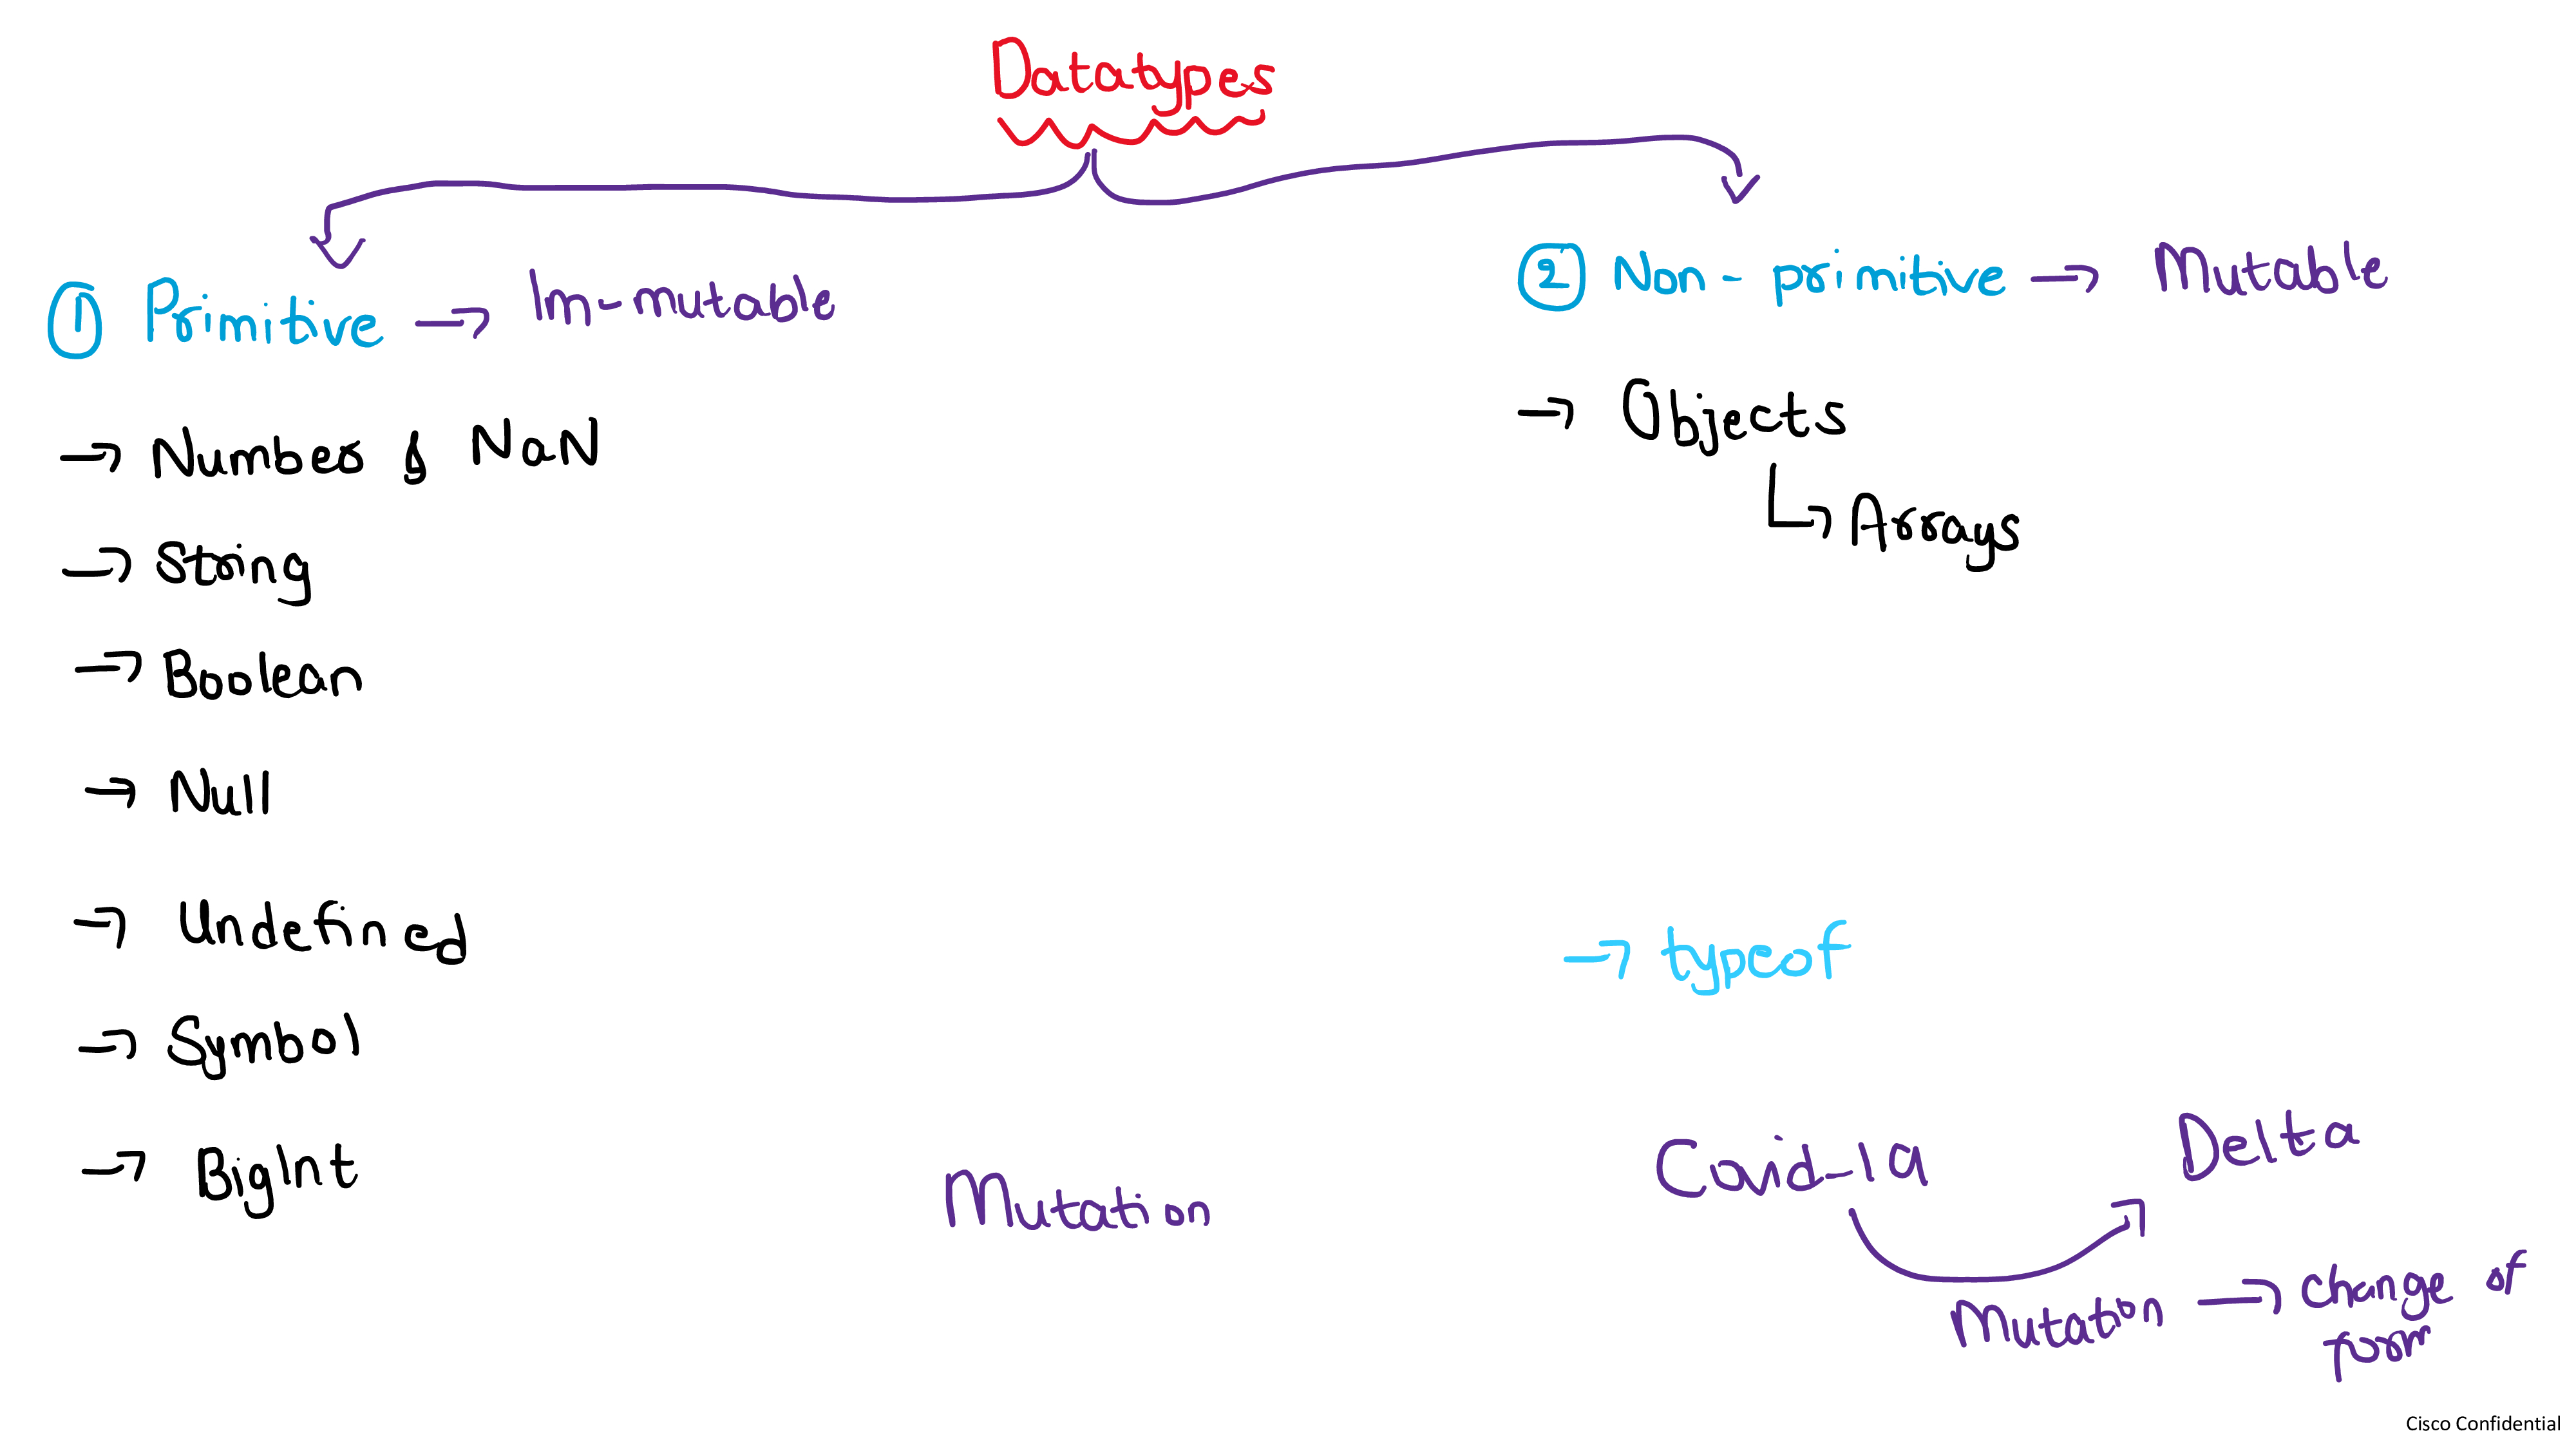 Datatypes
① Primitive → Im-mutable
→ Number & NaN
→ String
→ Boolean
→ Null
→ Undefined
→ Symbol
→ BigInt
② Non-primitive → Mutable
→ Objects
↳ Arrays
→ typeof
Mutation
Covid-19
Delta
Mutation → change of
form
Cisco Confidential